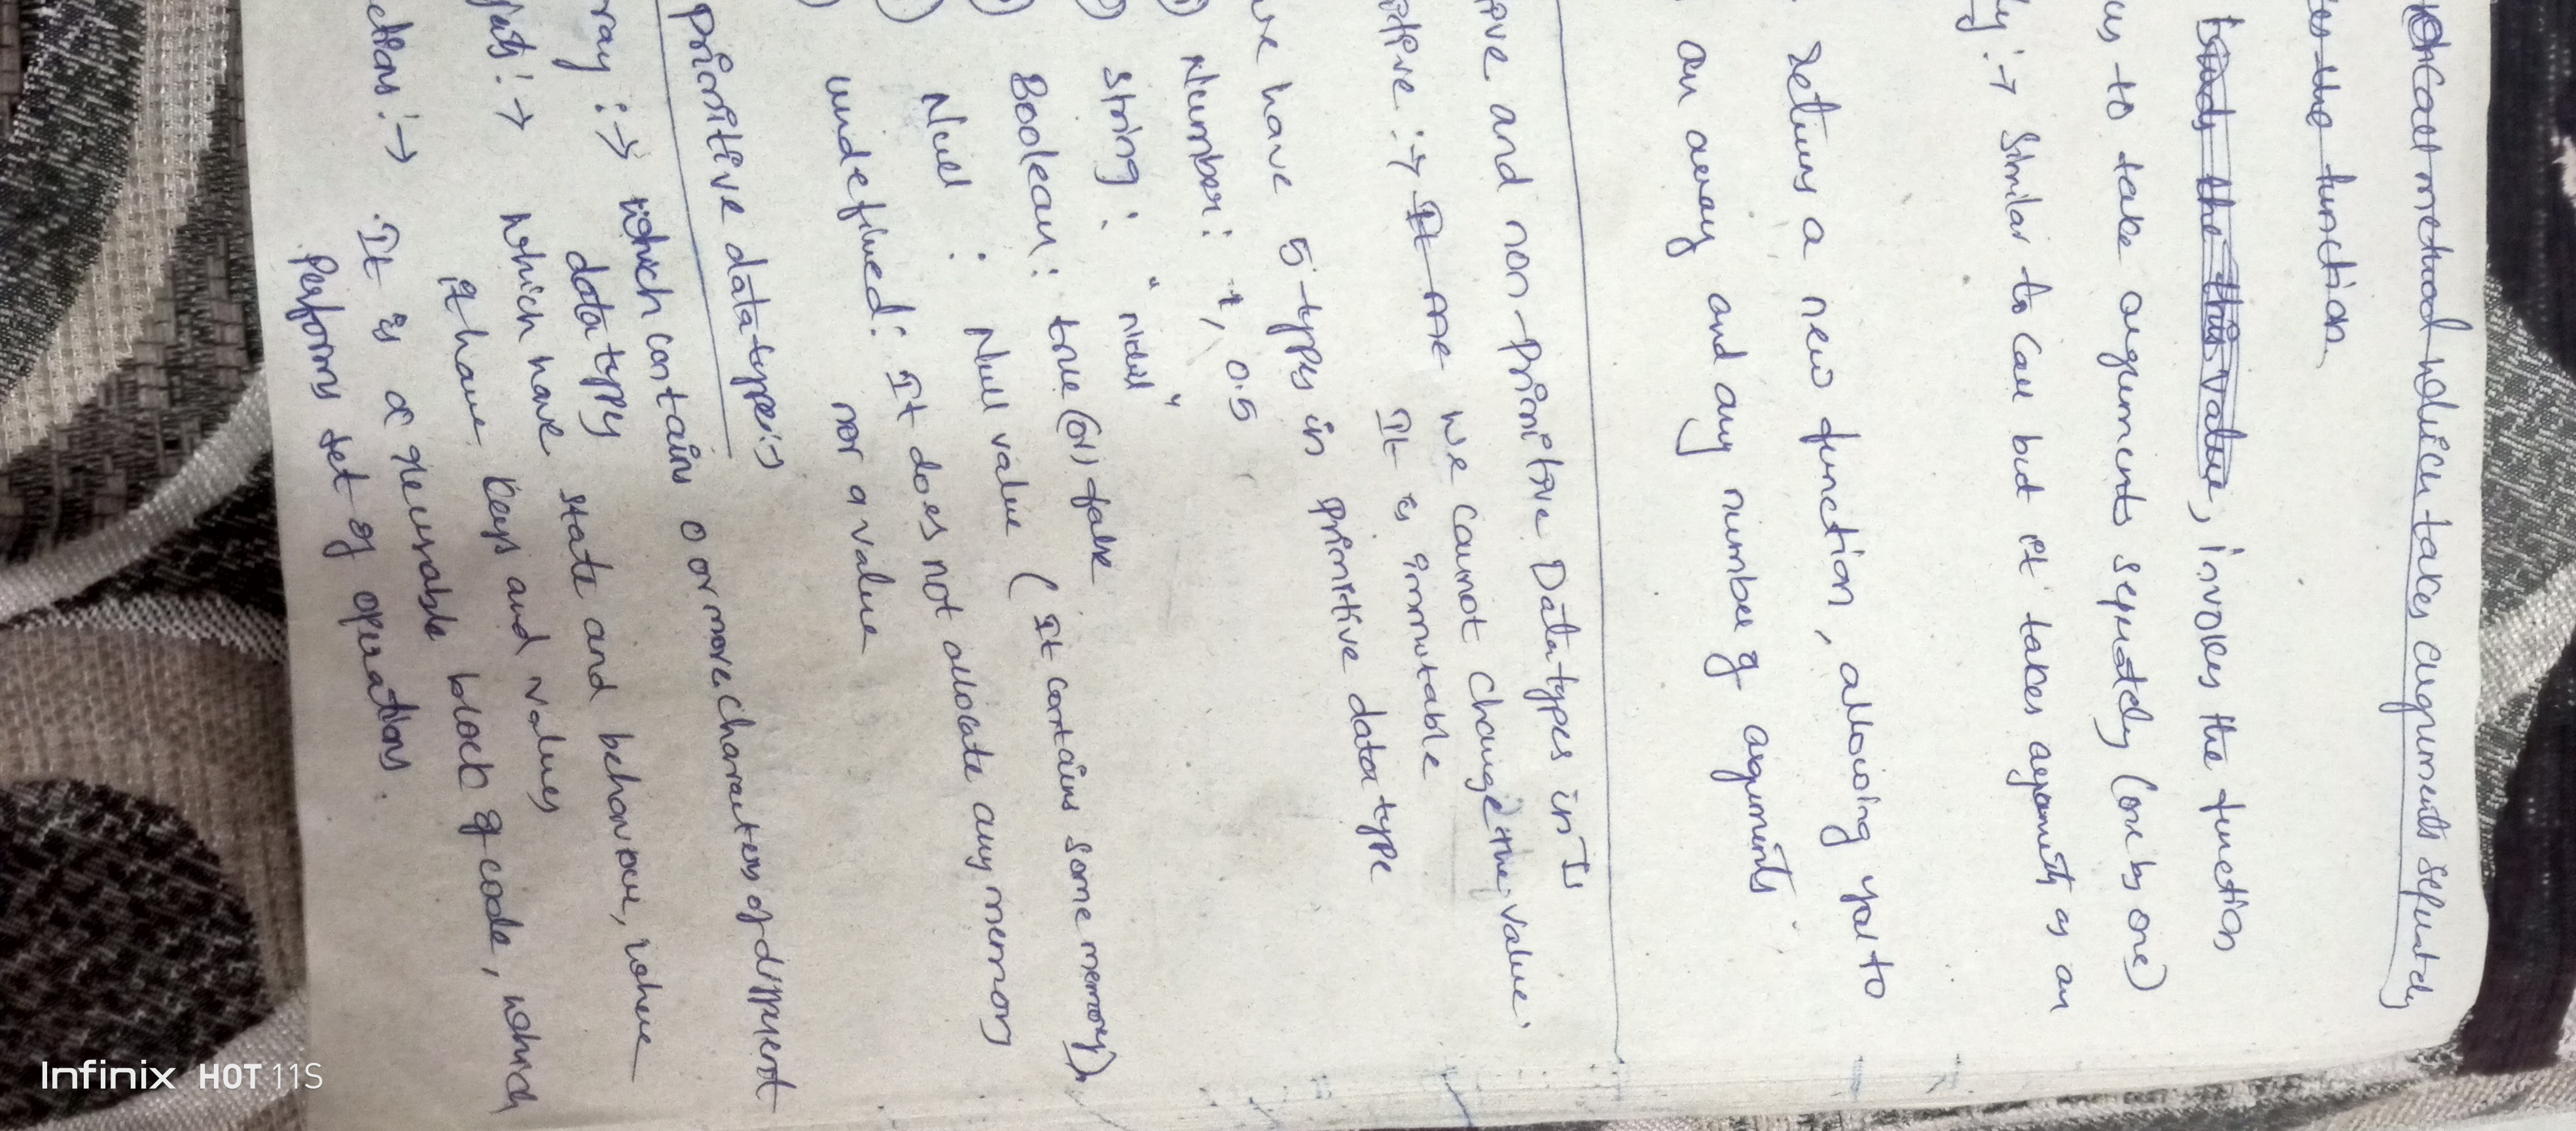 Call method which takes arguments seperately
the function
binds the this value, invokes the function
to take arguments seperately (one by one)
:→ Similar to Call but it takes arguments as an
returns a new function, allowing you to
an array and any number of arguments
and non-primitive Data types in JS
:→ It me we cannot change the value.
It is immutable
have 5-types in primitive data type
Number: 1, 0.5
String: "nikil"
Boolean: true (or) false
Null : Null value ( It contains some memory).
undefined: It does not allocate any memory
nor a value
Primitive data types:
:→ which contains 0 or more charaters of different
data types
:→ which have state and behaviour, where
it have keys and values
:→ It is a reusable block of code, which
Performs set of operations.
Infinix HOT 11S